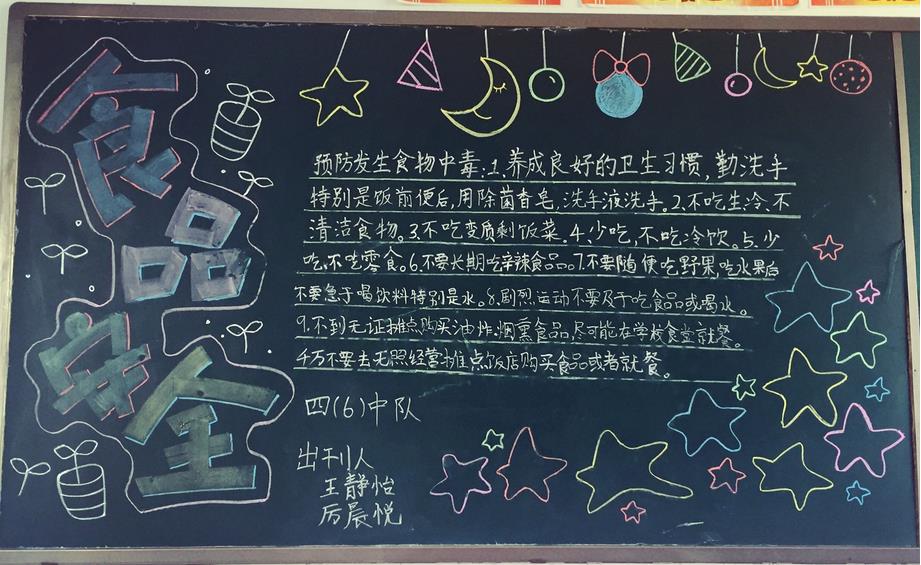 食品安全
预防发生食物中毒:1.养成良好的卫生习惯,勤洗手
特别是饭前便后,用除菌香皂、洗手液洗手。2.不吃生冷、不
清洁食物。3.不吃变质剩饭菜。4.少吃,不吃冷饮。5.少
吃,不吃零食。6.不要长期吃辛辣食品。7.不要随便吃野果,吃水果后
不要急于喝饮料特别是水。8.剧烈运动不要及于吃食品或喝水。
9.不到无证摊点购买油炸、烟熏食品,尽可能在学校食堂就餐。
千万不要去无照经营摊点饭店购买食品或者就餐。
四(6)中队
出刊人
王静怡
厉晨悦